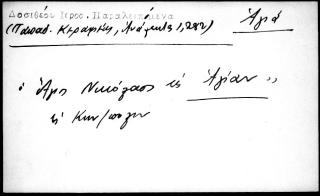 Δοσιθέου Ιερος. Παραλειπόμενα
(Παπαδ. Κεραμεύς, Ἀνάλεκτα 1, 282) Ἁγιά
ὁ Ἅγιος Νικόλαος εἰς Ἁγίαν,,
εἰς Κων/πολιν